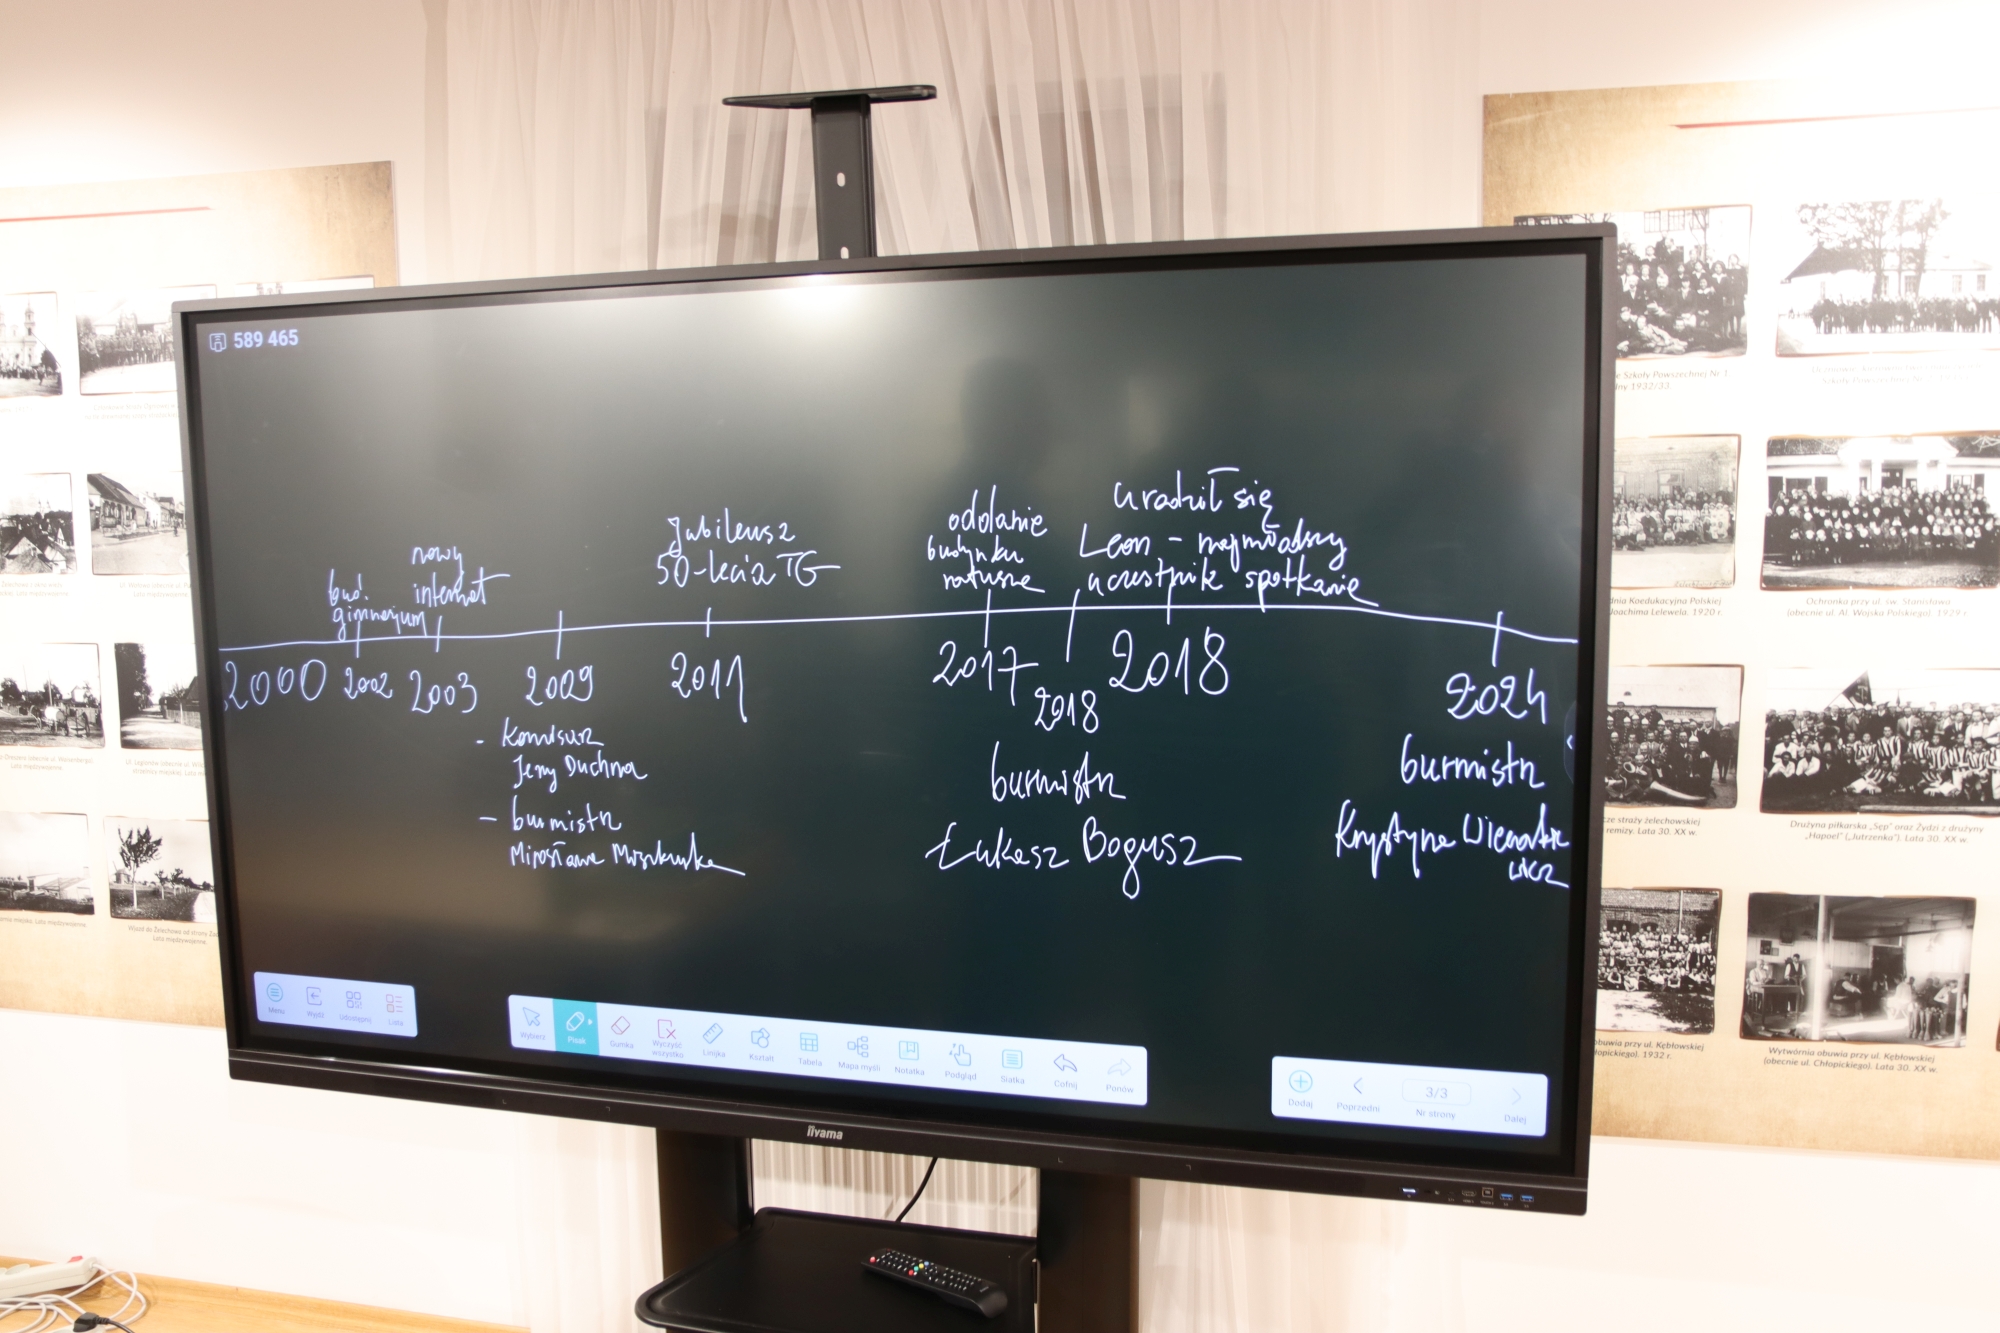 589 465
urodził się
Jubileusz
oddanie
Leon - najmłodszy
nowy
50-lecia TG
budynku
bud.
internat
ratusza
uczestnik spotkania
gimnazjum
2000
2002
2003
2009
2011
2017
2018
2018
2024
- Komisarz
Jerzy Duchna
- burmistrz
Mirosława
burmistrz
Łukasz Bogusz
burmistrz
Krystyna
Menu
Wyjdź
Udostępnij
Lista
Wybierz
Pisak
Gumka
Wyczyść
wszystko
Linijka
Kształt
Tabela
Mapa myśli
Notatka
Podgląd
Siatka
Cofnij
Ponów
Dodaj
Poprzedni
3/3
Nr strony
Dalej
iiyama
Wjazd do Żelechowa od strony
Lata międzywojenne.
Szkoły Powszechnej Nr 1
1932/33.
Koedukacyjna Polskiej
Joachima Lelewela, 1920 r.
Ochronka przy ul. św. Stanisława
(obecnie ul. Al. Wojska Polskiego). 1929 r.
straży żelechowskiej
remizy. Lata 30. XX w.
Drużyna piłkarska „Sęp" oraz Żydzi z drużyny
„Hapoel" („Jutrzenka"). Lata 30. XX w.
obuwia przy ul. Kębłowskiej
1932 r.
Wytwórnia obuwia przy ul. Kębłowskiej
(obecnie ul. Chłopickiego). Lata 30. XX w.